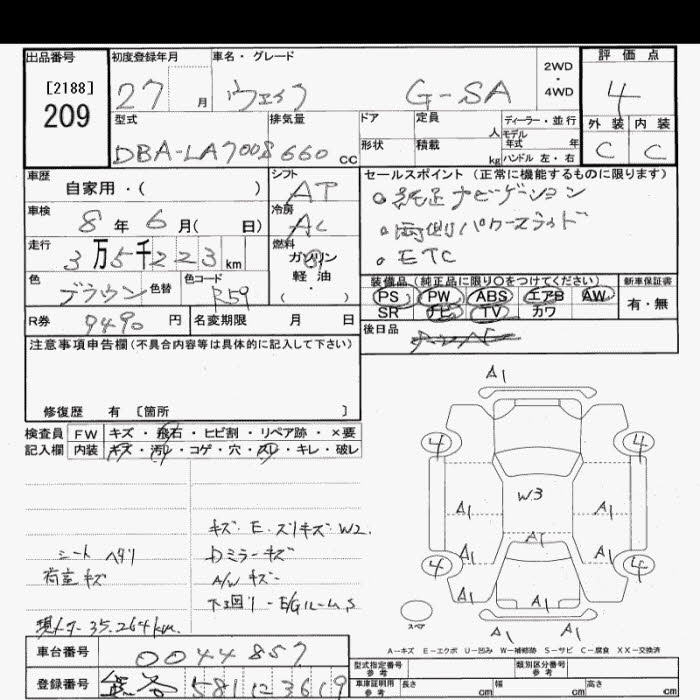 出品番号 初度登録年月 車名・グレード 2WD・4WD 評価点
[2188]
209 27 月 G-SA 4
型式 排気量 ドア 定員 人 ディーラー・並行 外装 内装
DBA-LA700S 660 cc 形状 積載 kg モデル年式 年 ハンドル 左・右 C C
車歴 自家用・( ) シフト AT セールスポイント(正常に機能するものに限ります)
車検 8 年 6 月( 日) 冷房 AC 純正ナビゲーション
両側パワースライド
走行 3万5千223km 燃料 ガソリン 軽油・ ETC
色 ブラウン 色替 色コード R59 装備品(純正品に限り○をつけてください) 新車保証書
PS PW ABS エアB AW 有・無
R券 9490 円 名変期限 月 日 SR ナビ TV カワ
後日品
注意事項申告欄(不具合内容等は具体的に記入して下さい)
修復歴 有 〔箇所 〕
検査員 FW キズ・飛石・ヒビ割・リペア跡・×要
記入欄 内装 キズ・汚レ・コゲ・穴・スレ・キレ・破レ
A1
4 4
W3
A1 A1
A1
A1 A1
4 4
A1 A1 A1
A1 A1
スペア
キズ・E・スリキズ W2.
シート ヘタリ Dミラーキズ
荷室キズ A/W キズ
下回り・E/Gルーム S
現メーター 35.264km.
A-キズ E-エクボ U-凹み W-補修跡 S-サビ C-腐食 XX-交換済
車台番号 0044857
型式指定番号 参考 類別区分番号 参考
登録番号 581 3619
車庫証明用 参考 長さ cm 幅 cm 高さ cm